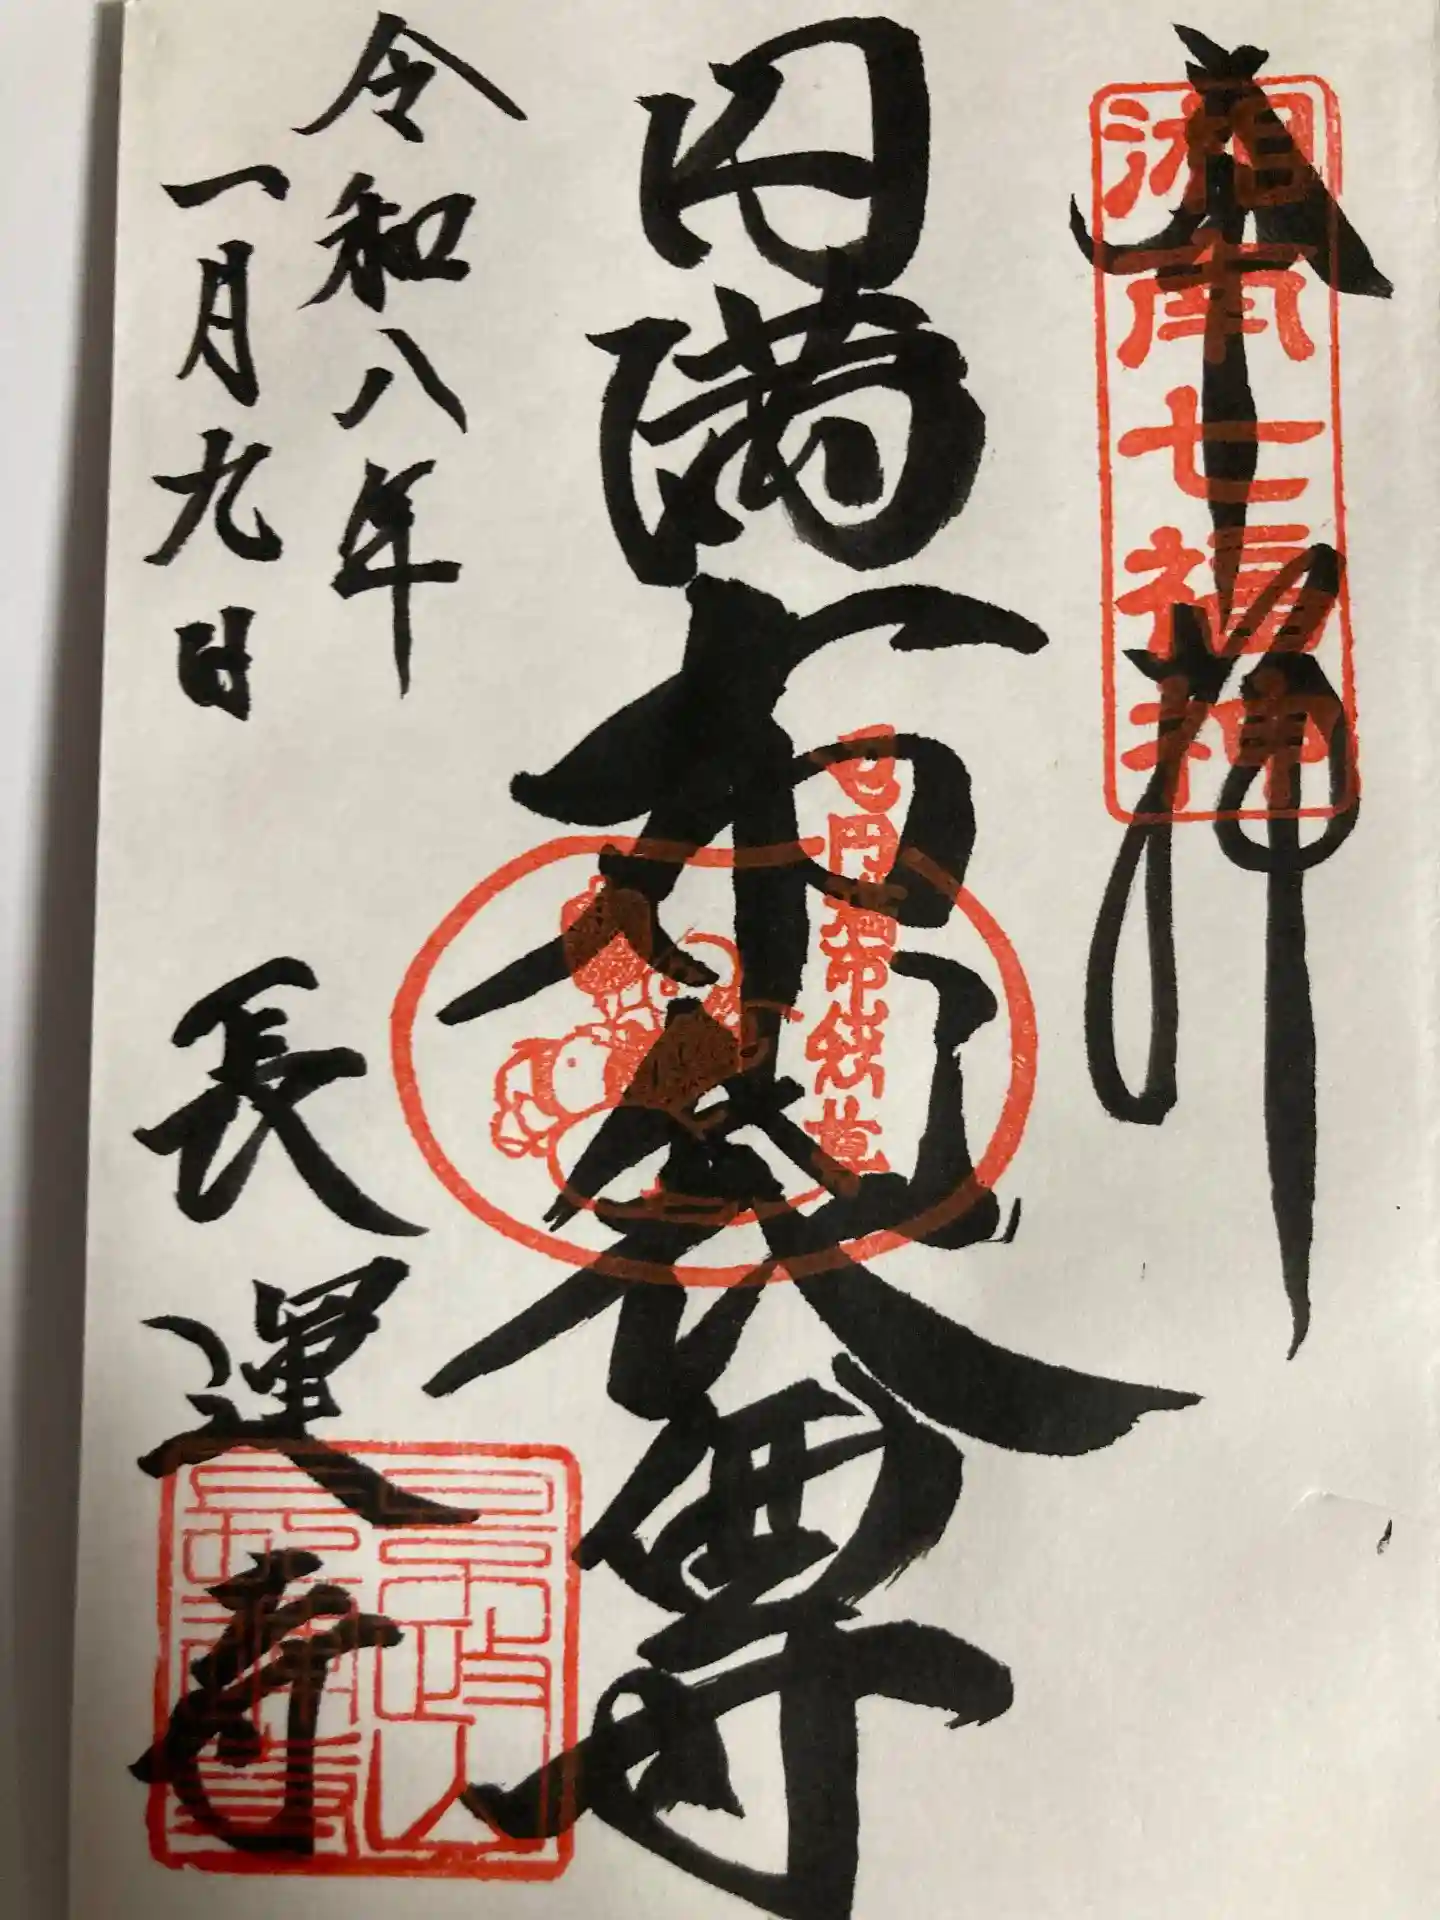 奉拝
湘南七福神
円満布袋尊
円満布袋尊
令和八年
一月九日
長運寺